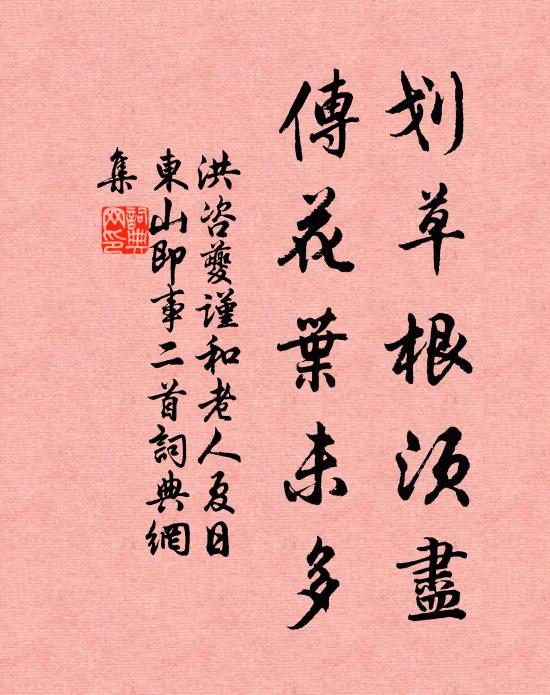 划草根须盡
傳花葉未多
洪咨夔謹和老人夏日
東山即事二首詞典網
集
詞典
网印